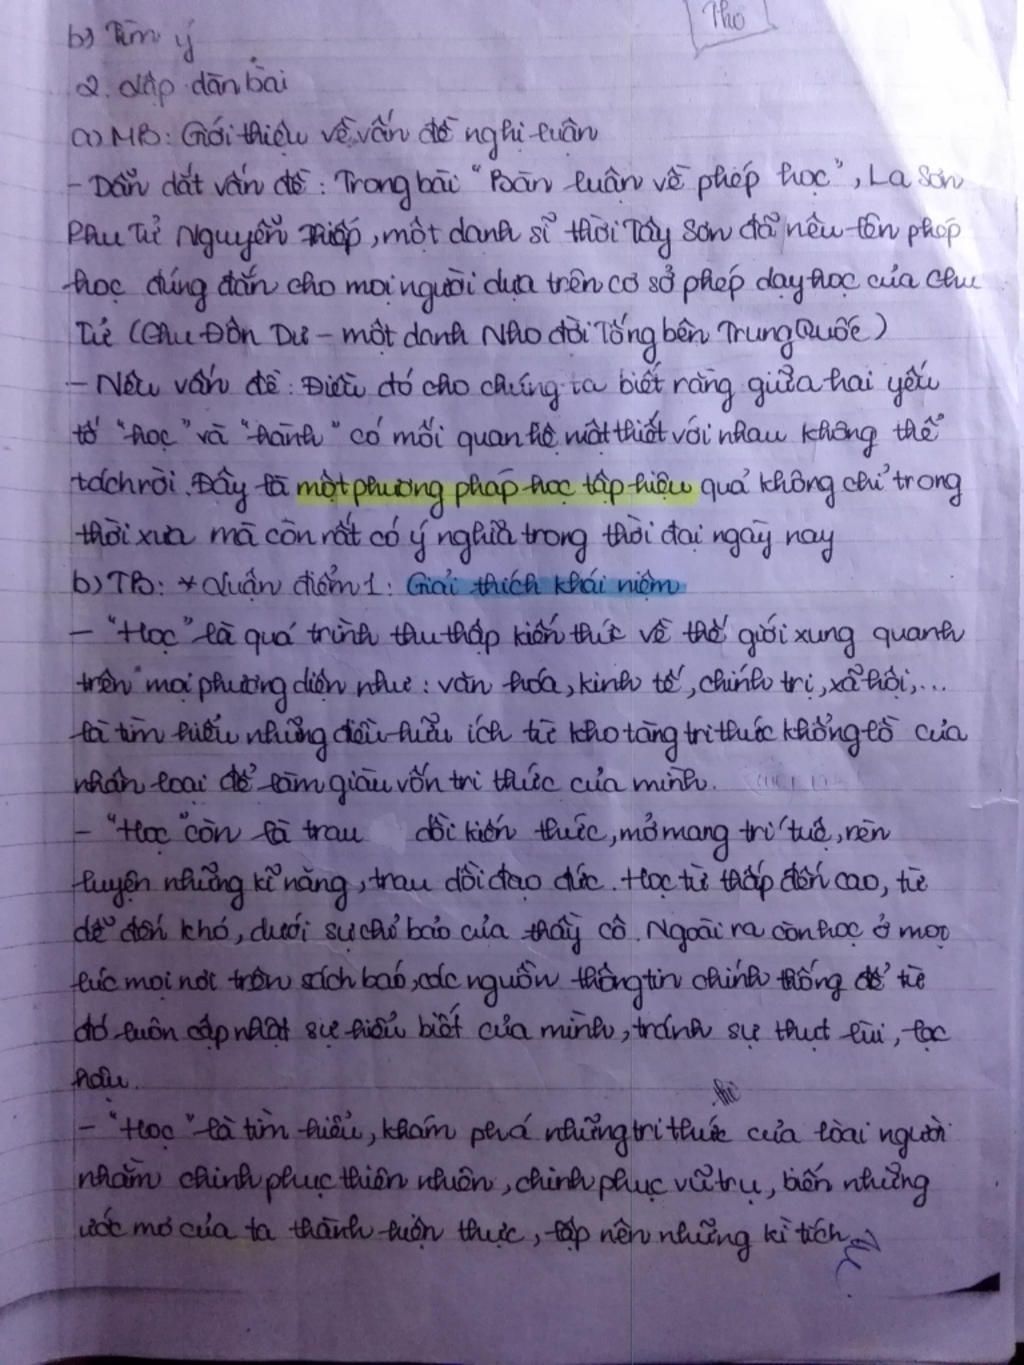 Thơ
b) Tìm ý
2. Lập dàn bài
a) MB: Giới thiệu về vấn đề nghị luận
- Dẫn dắt vấn đề: Trong bài "Bàn luận về phép học", La Sơn
Phu Tử Nguyễn Thiếp, một danh sĩ thời Tây Sơn đã nêu lên phép
học đúng đắn cho mọi người dựa trên cơ sở phép dạy học của Chu
Tử (Chu Đôn Di - một danh Nho đời Tống bên Trung Quốc)
- Nêu vấn đề: Điều đó cho chúng ta biết rằng giữa hai yếu
tố "học" và "hành" có mối quan hệ mật thiết với nhau không thể
tách rời. Đây là một phương pháp học tập hiệu quả không chỉ trong
thời xưa mà còn rất có ý nghĩa trong thời đại ngày nay
b) TB: * Luận điểm 1: Giải thích khái niệm
- "Học" là quá trình thu thập kiến thức về thế giới xung quanh
trên mọi phương diện như: văn hóa, kinh tế, chính trị, xã hội,...
là tìm hiểu những điều hữu ích từ kho tàng tri thức khổng lồ của
nhân loại để làm giàu vốn tri thức của mình.
- "Học" còn là trau dồi kiến thức, mở mang trí tuệ, rèn
luyện những kĩ năng, trau dồi đạo đức. Học từ thấp đến cao, từ
dễ đến khó, dưới sự chỉ bảo của thầy cô. Ngoài ra còn học ở mọi
lúc mọi nơi trên sách báo, các nguồn thông tin chính thống để từ
đó luôn cập nhật sự hiểu biết của mình, tránh sự thụt lùi, lạc
hậu.
- "Học" là tìm hiểu, khám phá những tri thức của loài người
nhằm chinh phục thiên nhiên, chinh phục vũ trụ, biến những
ước mơ của ta thành hiện thực, lập nên những kì tích